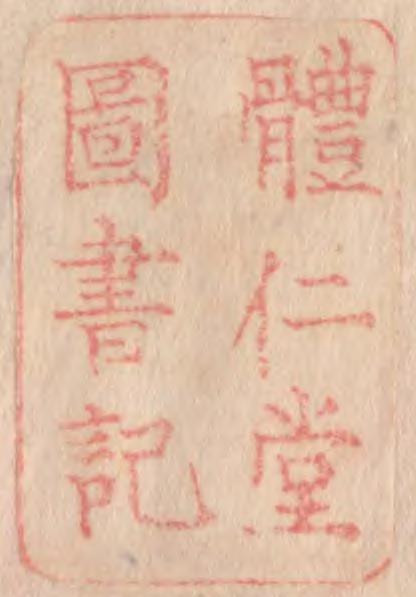 體仁堂
圖書記